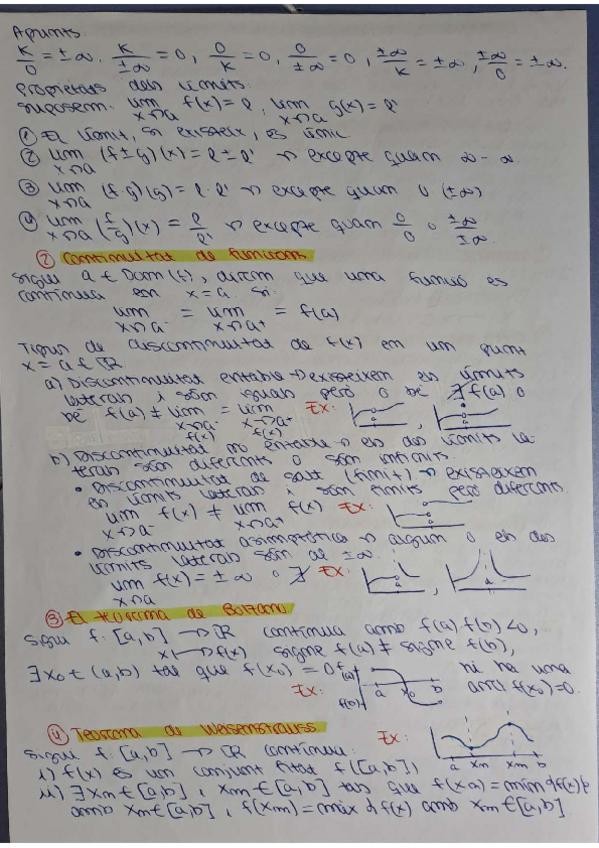 Apunts.
K/0 = ±∞, K/±∞ = 0, 0/K = 0, 0/±∞ = 0, ±∞/K = ±∞, ±∞/0 = ±∞.
Propietats dels límits.
Suposem: lim x→a f(x) = l, lim x→a g(x) = l'
① El límit, si existeix, és únic
② lim x→a (f±g)(x) = l ± l' → excepte quan ∞ - ∞
③ lim x→a (f·g)(x) = l·l' → excepte quan 0·(±∞)
④ lim x→a (f/g)(x) = l/l' → excepte quan 0/0 o ±∞/±∞.
② Continuïtat de funcions
Sigui a ∈ Dom(f), direm que una funció és
contínua en x=a si:
lim x→a⁻ = lim x→a⁺ = f(a)
Tipus de discontinuïtat de f(x) en un punt
x = a ∈ ℝ
a) Discontinuïtat evitable → existeixen els límits
laterals i són iguals però o bé ∄ f(a) o
bé f(a) ≠ lim x→a⁻ f(x) = lim x→a⁺ f(x) Ex: ,
b) Discontinuïtat no evitable → els dos límits la-
terals són diferents o són infinits.
• Discontinuïtat de salt (finit) → existeixen
els límits laterals i són finits però diferents.
lim x→a⁻ f(x) ≠ lim x→a⁺ f(x) Ex:
• Discontinuïtat asimptòtica → algun o els dos
límits laterals són de ±∞.
lim x→a f(x) = ±∞ o ∄ Ex: , a
③ El teorema de Bolzano
Sigui f: [a,b] → ℝ contínua amb f(a) f(b) < 0,
x ↦ f(x) signe f(a) ≠ signe f(b),
∃ x₀ ∈ (a,b) tal que f(x₀) = 0 f(a) hi ha una
Ex: f(b) a x₀ b f(x₀)=0.
④ Teorema de Weisenstrauss
Sigui f: [a,b] → ℝ contínua: Ex:
i) f(x) és un conjunt fitat f([a,b]) a xm xM b
ii) ∃ xm ∈ [a,b] i xM ∈ [a,b] tals que f(xm) = min d f(x)
amb xm ∈ [a,b] i f(xM) = màx d f(x) amb xM ∈ [a,b]